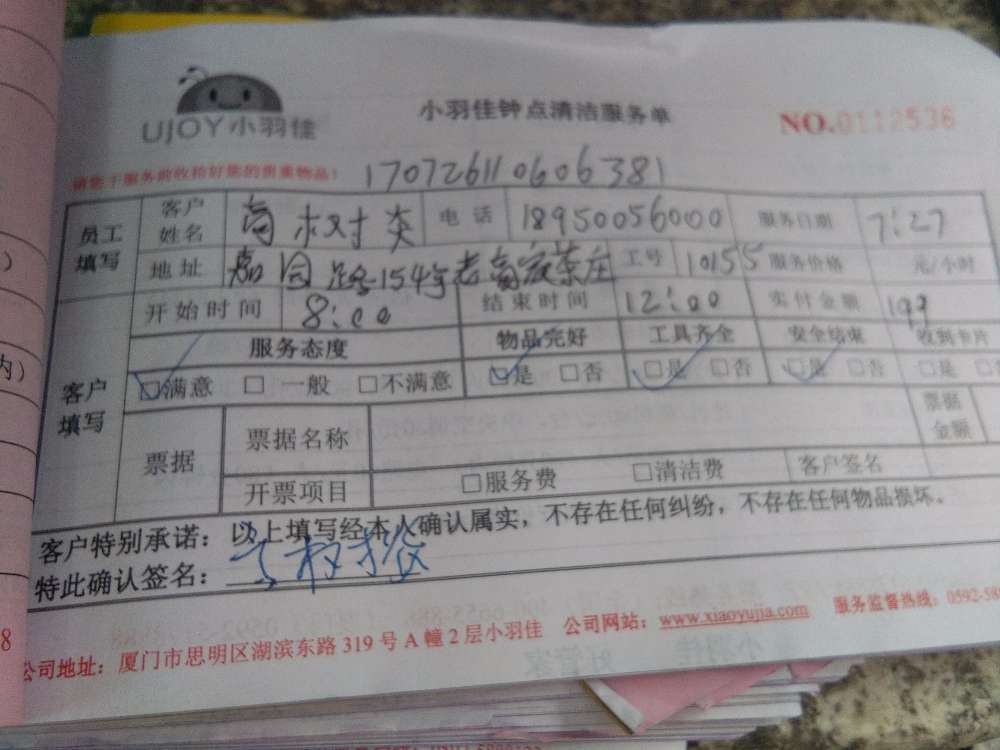 UJOY小羽佳
小羽佳钟点清洁服务单
NO.0112536
请您于服务前收拾好您的贵重物品!
170726110606381
员工填写 客户姓名 电话 18950056000 服务日期 7:27
地址 嘉园路154号老高家茶庄 工号 10155 服务价格 元/小时
开始时间 8:00 结束时间 12:00 实付金额 199
客户填写 服务态度 物品完好 工具齐全 安全结束 收到卡片
☑满意 □一般 □不满意 ☑是 □否 ☑是 □否 ☑是 □否 □是
票据 票据名称 票据金额
开票项目 □服务费 □清洁费 客户签名
客户特别承诺:以上填写经本人确认属实,不存在任何纠纷,不存在任何物品损坏。
特此确认签名:
公司地址:厦门市思明区湖滨东路319号A幢2层小羽佳 公司网站:www.xiaoyujia.com 服务监督热线:0592-588